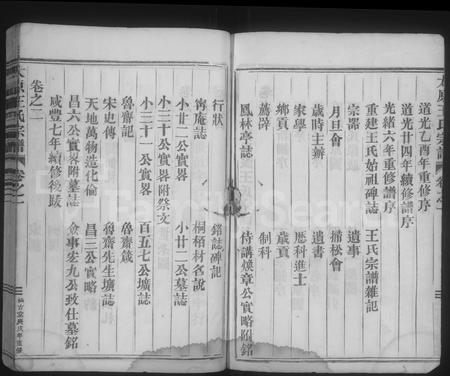 太原王氏宗譜 卷之一
道光乙酉年重修序
道光廿四年續修譜序
光緒六年重修譜序
重建王氏始祖碑誌 王氏宗譜雜記
宗器 遺事
月旦會 掃松會
歲時主辦 遺書
家學 歷科進士
鄉貢 歲貢
薦辟 制科
鳳林亭誌 待講煥章公實略附銘
行狀 銘誌碑記
舊庵誌 桐栢材名說
小廿二公實畧 小廿二公墓誌
小三十公實畧附祭文
小三十一公實畧 百五七公壙誌
魯齋記 魯齋箴
宋史傳 魯齋先生壙誌
天地萬物造化倫 昌三公實略
昌六公實畧附墓誌 僉事宏九公致仕墓銘
咸豐七年續修後跋
卷之二
太原王氏宗譜 卷之一